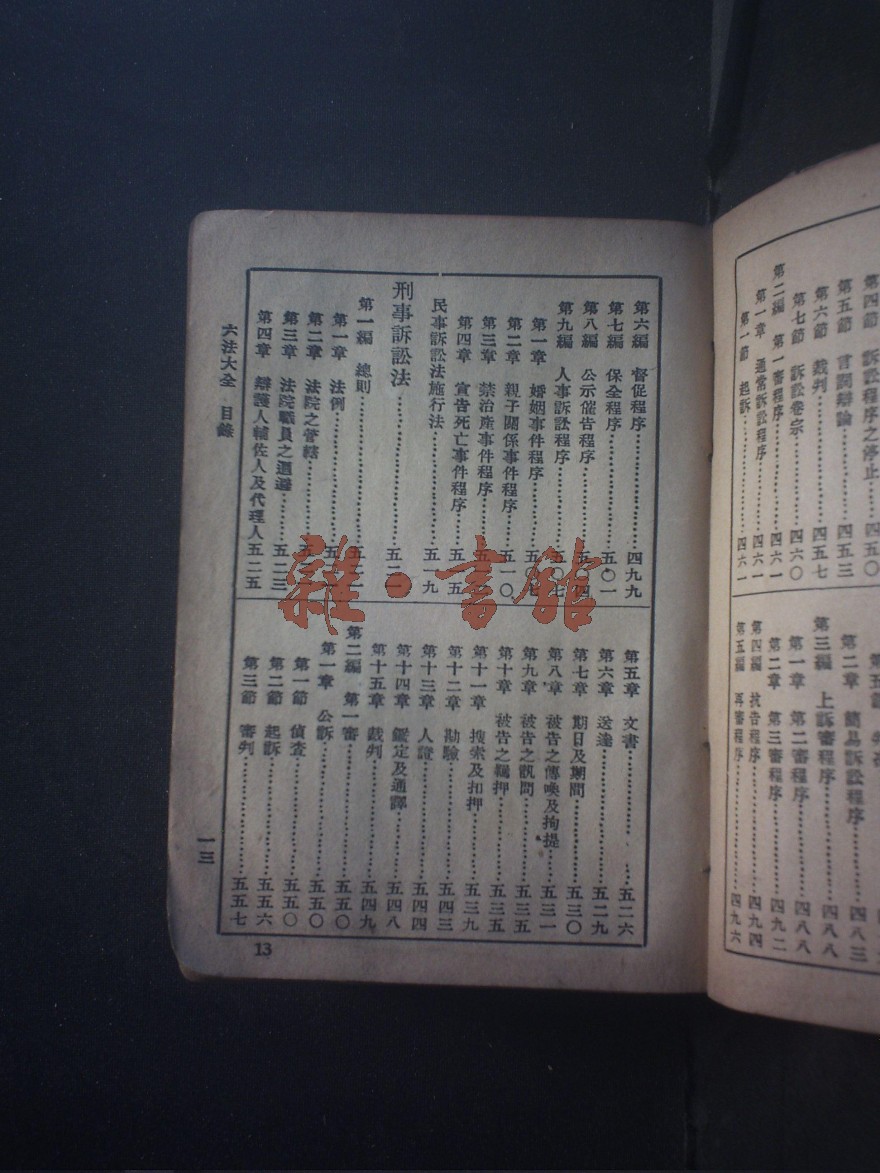 第四節 訴訟程序之停止……四五〇
第五節 言詞辯論……四五三
第六節 裁判……四五七
第七節 訴訟卷宗……四六〇
第二編 第一審程序……四六一
第一章 通常訴訟程序……四六一
第一節 起訴……四六一
第五節
第二章 簡易訴訟程序……四八三
第三編 上訴審程序……四八八
第一章 第二審程序……四八八
第二章 第三審程序……四九二
第四編 抗告程序……四九四
第五編 再審程序……四九六
第六編 督促程序……四九九
第七編 保全程序……五〇一
第八編 公示催告程序……五〇四
第九編 人事訴訟程序……五〇七
第一章 婚姻事件程序……五〇七
第二章 親子關係事件程序……五一〇
第三章 禁治產事件程序……五一
第四章 宣告死亡事件程序……五一五
民事訴訟法施行法……五一九
刑事訴訟法……五二一
第一編 總則……五二一
第一章 法例……五
第二章 法院之管轄……五
第三章 法院職員之迴避……五二三
第四章 辯護人輔佐人及代理人五二五
第五章 文書……五二六
第六章 送達……五二九
第七章 期日及期間……五三〇
第八章 被告之傳喚及拘提……五三一
第九章 被告之訊問……五三五
第十章 被告之羈押……五三五
第十一章 搜索及扣押……五三九
第十二章 勘驗……五四三
第十三章 人證……五四四
第十四章 鑑定及通譯……五四八
第十五章 裁判……五四九
第二編 第一審……五五〇
第一章 公訴……五五〇
第一節 偵查……五五〇
第二節 起訴……五五六
第三節 審判……五五七
六法大全 目錄
一三
13
雜·書館